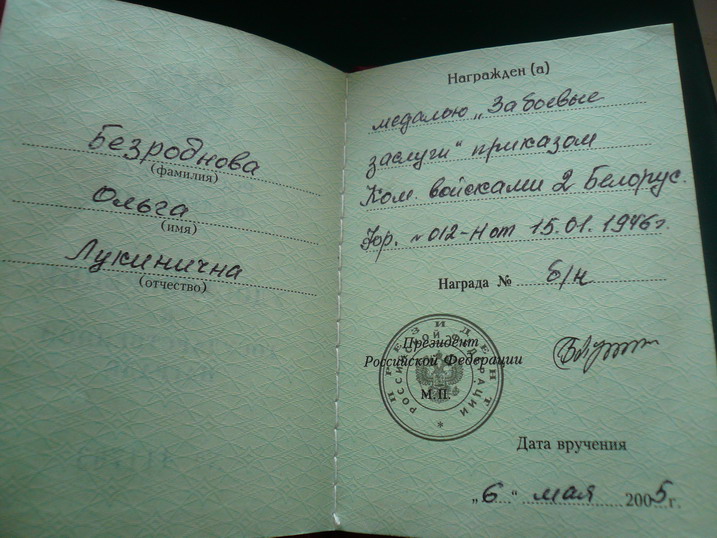 Безроднова
(фамилия)
Ольга
(имя)
Лукинична
(отчество)
Награжден (а)
медалью „За боевые
заслуги" приказом
Ком. войсками 2 Белорус.
фр. №012-Н от 15.01.1946г.
Награда № б/н
Президент
Российской Федерации
М.П.
ПРЕЗИДЕНТ
РОССИЙСКОЙ ФЕДЕРАЦИИ
Дата вручения
„6" мая 2005г.